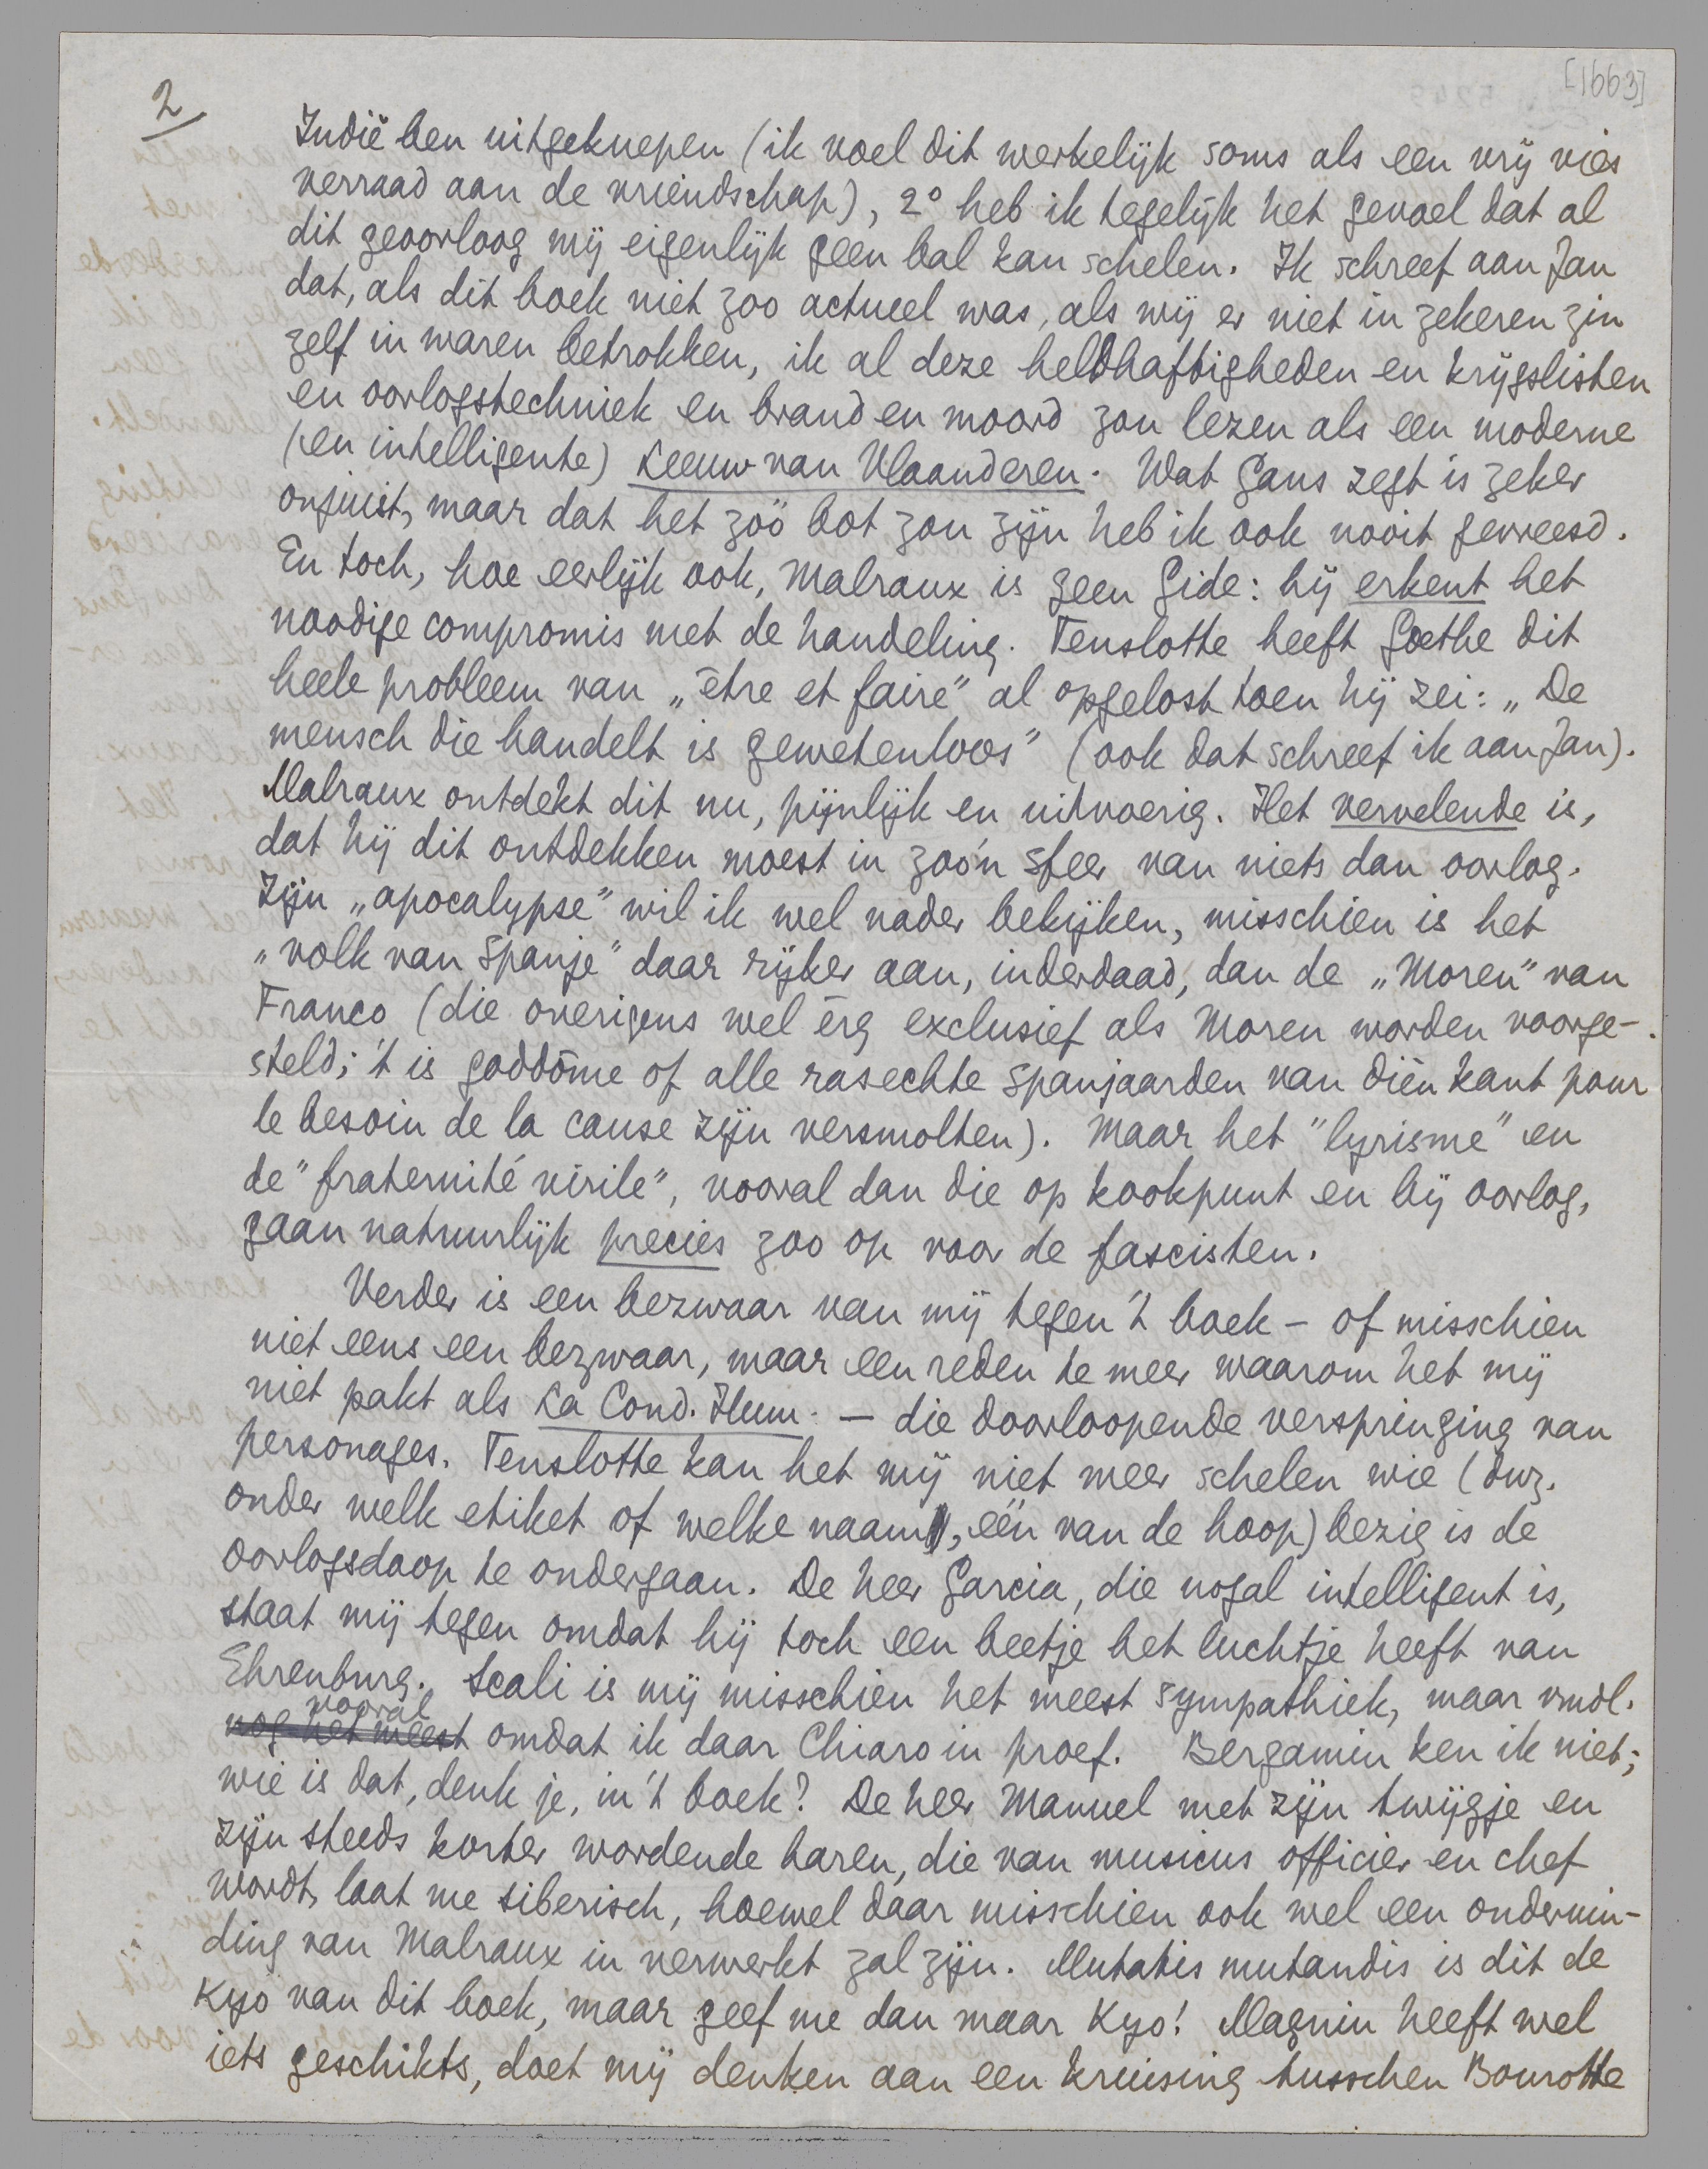 [1663]
2
Indië ben uitgeknepen (ik voel dit werkelijk soms als een vrij vies
verraad aan de vriendschap), 2° heb ik tegelijk het gevoel dat al
dit geoorloog mij eigenlijk geen bal kan schelen. Ik schreef aan Jan
dat, als dit boek niet zoo actueel was, als wij er niet in zekeren zin
zelf in waren betrokken, ik al deze heldhaftigheden en krijgslisten
en oorlogstechniek en brand en moord zou lezen als een moderne
(en intelligente) Leeuw van Vlaanderen. Wat Gans zegt is zeker
onjuist, maar dat het zóó bot zou zijn heb ik ook nooit gevreesd.
En toch, hoe eerlijk ook, Malraux is geen Gide: hij erkent het
noodige compromis met de handeling. Tenslotte heeft Goethe dit
heele probleem van „être et faire" al opgelost toen hij zei: „De
mensch die handelt is gewetenloos" (ook dat schreef ik aan Jan).
Malraux ontdekt dit nu, pijnlijk en uitvoerig. Het vervelende is,
dat hij dit ontdekken moest in zoo'n sfeer van niets dan oorlog.
Zijn „apocalypse" wil ik wel nader bekijken, misschien is het
„volk van Spanje" daar rijker aan, inderdaad, dan de „Moren" van
Franco (die overigens wel èrg exclusief als Moren worden voorge-
steld; 't is goddòme of alle rasechte Spanjaarden van dièn kant pour
le besoin de la cause zijn versmolten). Maar het "lyrisme" en
de "fraternité virile", vooral dan die op kookpunt en bij oorlog,
gaan natuurlijk precies zoo op voor de fascisten.
Verder is een bezwaar van mij tegen 't boek – of misschien
niet eens een bezwaar, maar een reden te meer waarom het mij
niet pakt als La Cond. Hum. – die doorloopende verspringing van
personages. Tenslotte kan het mij niet meer schelen wie (dwz.
onder welk etiket of welke naam, één van de hoop) bezig is de
oorlogsdoop te ondergaan. De heer Garcia, die nogal intelligent is,
staat mij tegen omdat hij toch een beetje het luchtje heeft van
Ehrenburg. Scali is mij misschien het meest sympathiek, maar vmdl.
vooral
nog het meest omdat ik daar Chiaro in proef. Bergamin ken ik niet;
wie is dat, denk je, in 't boek? De heer Manuel met zijn twijgje en
zijn steeds korter wordende haren, die van musicus officier en chef
wordt, laat me siberisch, hoewel daar misschien ook wel een ondervin-
ding van Malraux in verwerkt zal zijn. Mutatis mutandis is dit de
Kyo van dit boek, maar geef me dan maar Kyo! Magnin heeft wel
iets geschikts, doet mij denken aan een kruising tusschen Bourotte